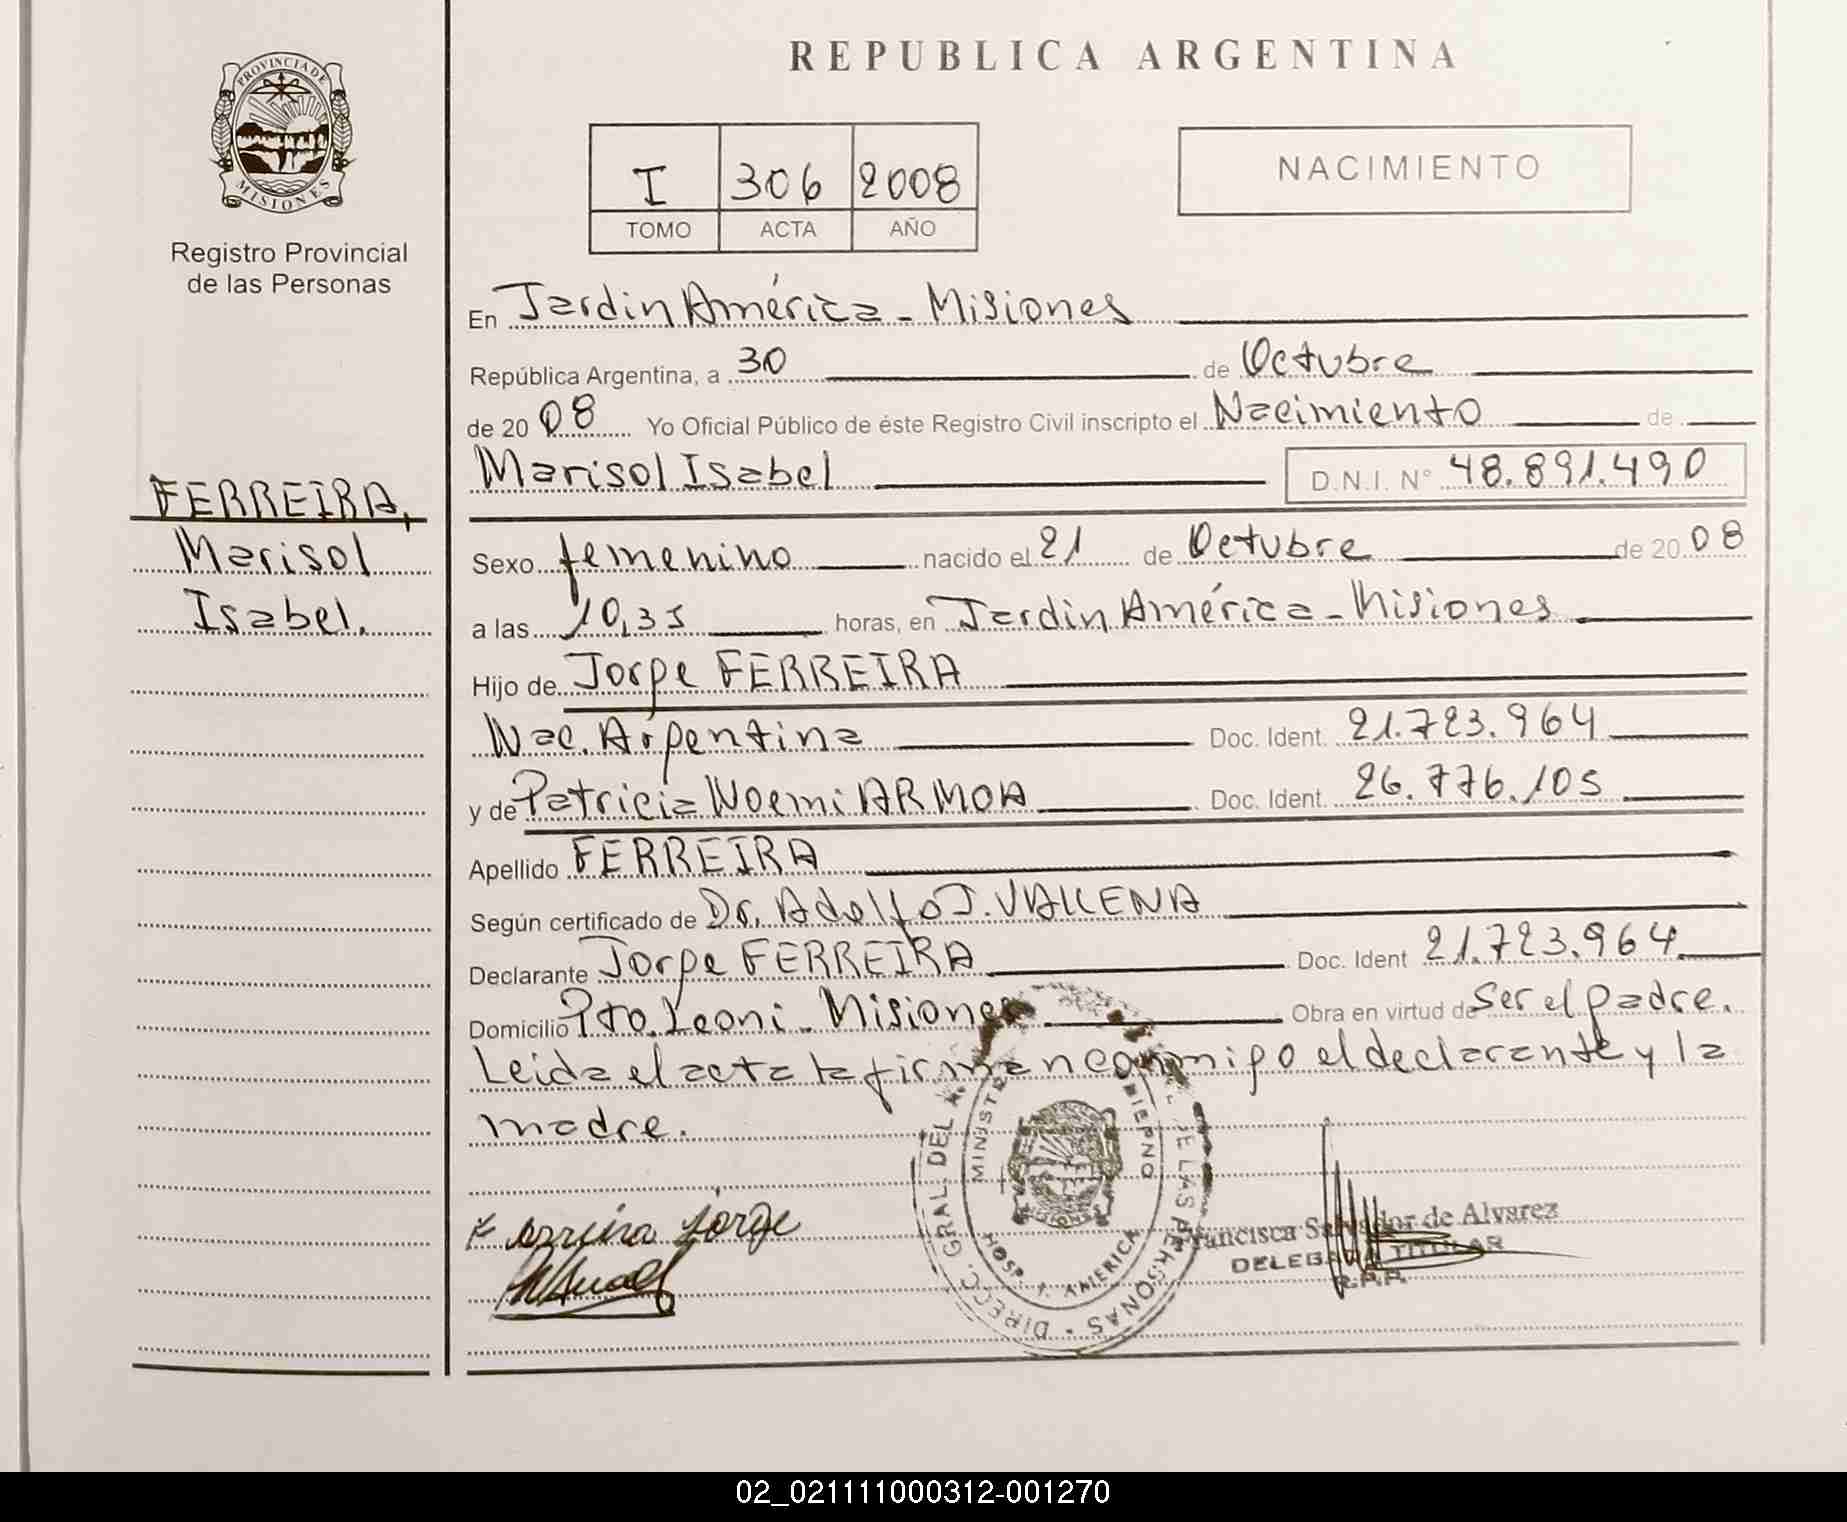 PROVINCIA DE
MISIONES
Registro Provincial
de las Personas
FERREIRA,
Marisol
Isabel.
REPUBLICA ARGENTINA
I 306 2008
TOMO ACTA AÑO
NACIMIENTO
En Jardin América - Misiones
República Argentina, a 30 de Octubre
de 2008 Yo Oficial Público de éste Registro Civil inscripto el Nacimiento de
Marisol Isabel D.N.I. N° 48.891.490
Sexo femenino nacido el 21 de Octubre de 2008
a las 10,35 horas, en Jardin América - Misiones
Hijo de Jorge FERREIRA
Nac. Argentina Doc. Ident. 21.723.964
y de Patricia Noemi ARMOA Doc. Ident. 26.776.105
Apellido FERREIRA
Según certificado de Dr. Adolfo J.
Declarante Jorge FERREIRA Doc. Ident 21.723.964
Domicilio Pto. Leoni - Misiones Obra en virtud de Ser el padre.
Leida el acta la firman conmigo el declarante y la
madre.
Ferreira Jorge
DIRECC. GRAL. DEL DE LAS PERSONAS
HOSP. J. AMERICA
MISIONES
Francisca Salvador de Alvarez
DELEGADA TITULAR
R.P.P.
02_021111000312-001270